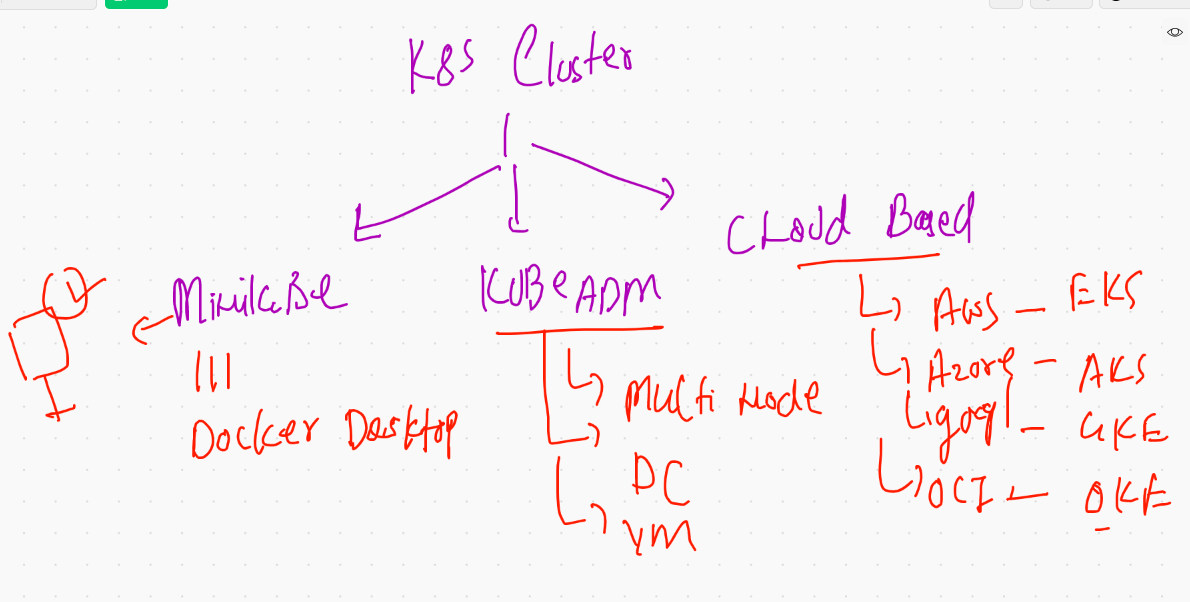 K8s Cluster
MinikuBe
Docker Desktop
KUBeADM
Multi Node
DC
VM
CLoud Based
AWS - EKS
Azure - AKS
googl - GKE
OCI - OKE